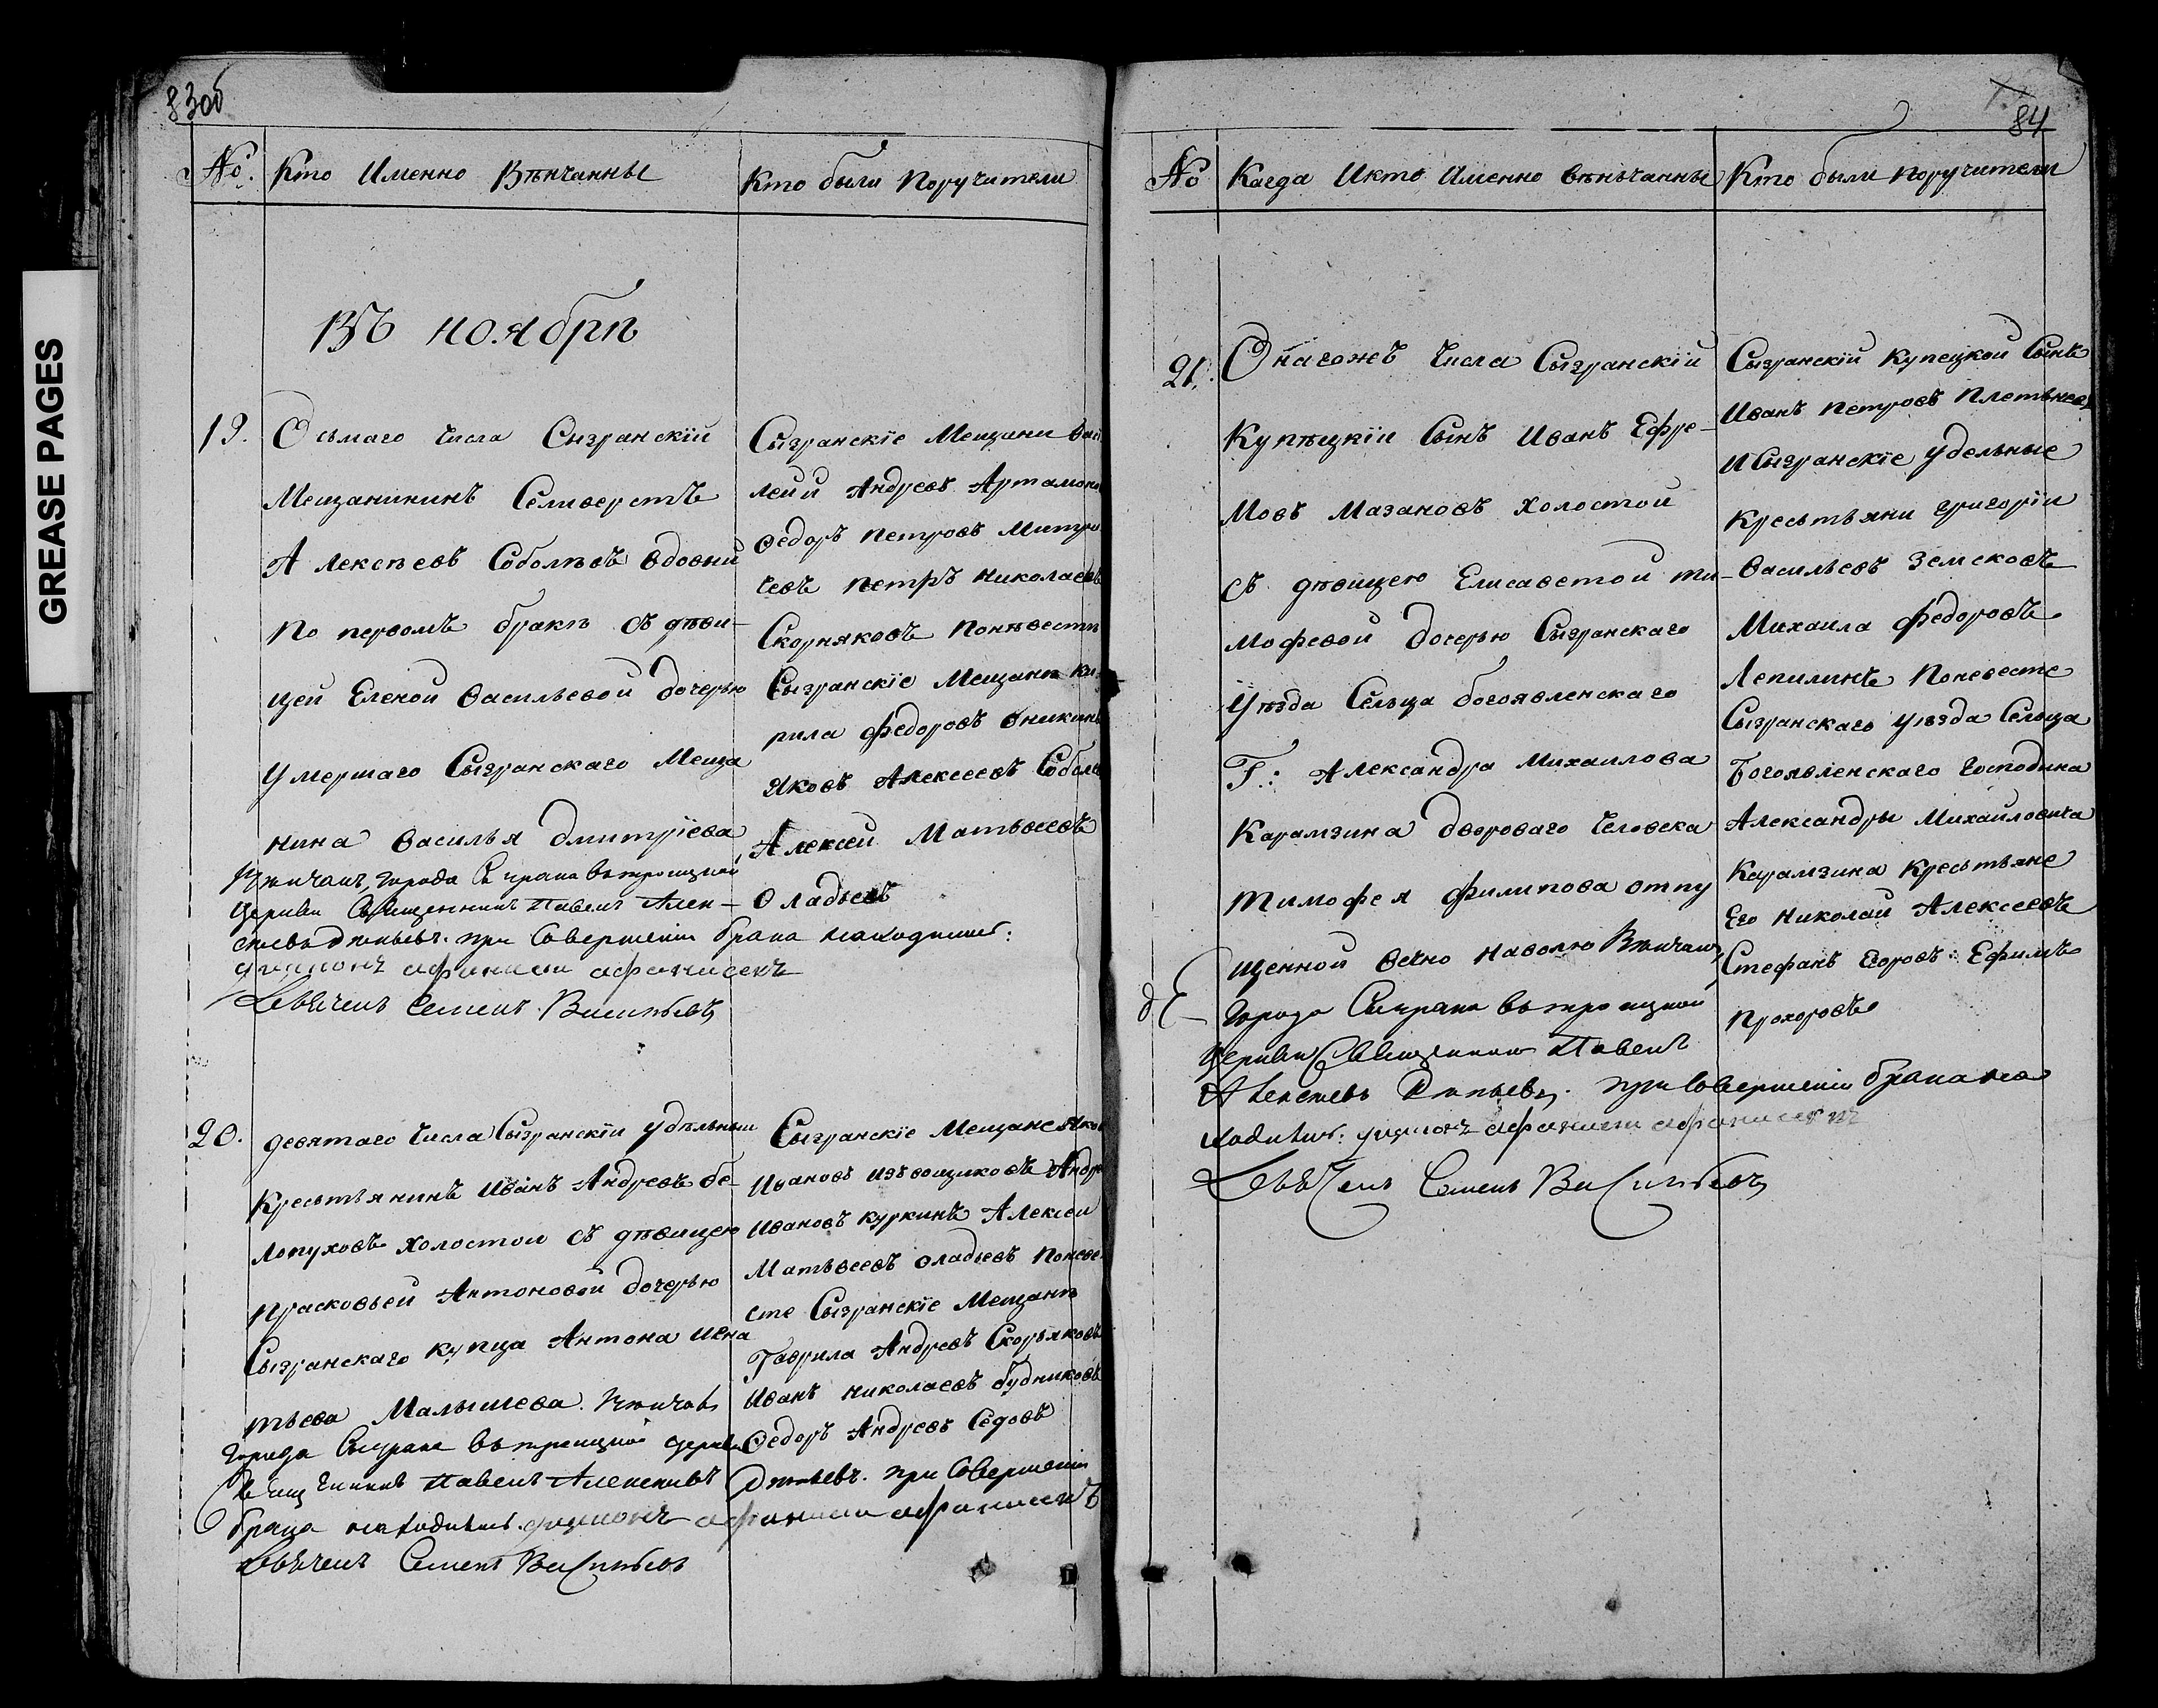 GREASE PAGES
83об
№. Кто Именно Вѣнчанны
Кто были Поручители
Въ ноябрѣ
19. Осьмаго Числа Сызранскїй
Мещанининъ Селиверстъ
Алексѣевъ Соболѣвъ вдовый
по первомъ бракѣ съ дѣви-
цей Еленой Васильевой дочерью
Умершаго Сызранскаго Меща
нина Василья Дмитрїева
Вѣнчалъ, города Сызрана Вотроицкой
Церкви Священникъ Павелъ Алек-
при Совершенїи брака находились:
дїаконъ
Семенъ Васильевъ
Сызранскїе Мещани Васи
лей Андреевъ Артамоно
Федоръ Петровъ Митро
Петръ Николаевъ
Скорняковъ Поневестѣ
Сызранскїе Мещанѣ Ки
рила Федоровъ Оникинъ
Яковъ Алексеевъ Собол
Алексей Матьвеевъ
Оладьевъ
20. девятаго Числа Сызранскїи удѣльный
Кресьтьянинъ Иванъ Андреевъ бе-
лопуховъ холостои съ дѣвицею
Прасковьей Антоновой дочерью
Сызранскаго купца Антона Игна
тьева Малышева. Вѣнчалъ
города Сызрана Вотроицкой Церкви
Священникъ Павелъ Алексѣевъ при Совершенїи
брака находились. дїаконъ
Семенъ Васильевъ
Сызранскїе Мещане Яков
Ивановъ Извощиковъ Андре
Ивановъ Куркинъ Алексеи
Матьвеевъ Оладьевъ Поневе
сте Сызранскїе Мещанѣ
Гаврила Андреевъ Скорьяковъ
Иванъ Николаевъ Будниковъ
Федоръ Андреевъ Седовъ
84
№ Когда Икто Именно Вѣньчанны
Кто были Поручители
21. Онагожъ Числа Сызранскїй
Купѣцкїи Сынъ Иванъ Ефре-
мовъ Мазановъ холостой
съ дѣвицею Елисаветой ти-
мофевой дочерью Сызранскаго
Уѣзда Сельца богоявленскаго
Г.: Александра Михаилова
Карамзина двороваго Человека
Тимофея Филипова отпу
щенной вечно наволю Вѣнчалъ,
города Сызрана Вотроицкой
Церкви Священникъ Павелъ
Алексѣевъ при Совершенїи брака на
ходились: дїаконъ
Семенъ Васильевъ
Сызранскїй Купецкой Сынъ
Иванъ Петровъ Плетьнев
И Сызранскїе удельные
Кресьтьяни Григорїи
Васильевъ Земсковъ
Михаила Федоровъ
Лепилинъ Поневесте
Сызранскаго уѣзда Сельца
Богоявленскаго Господина
Александры Михайловича
Карамзина Кресьтьяне
Его Николай Алексеевъ
Стефанъ Егоровъ: Ефимъ
Прохоровъ